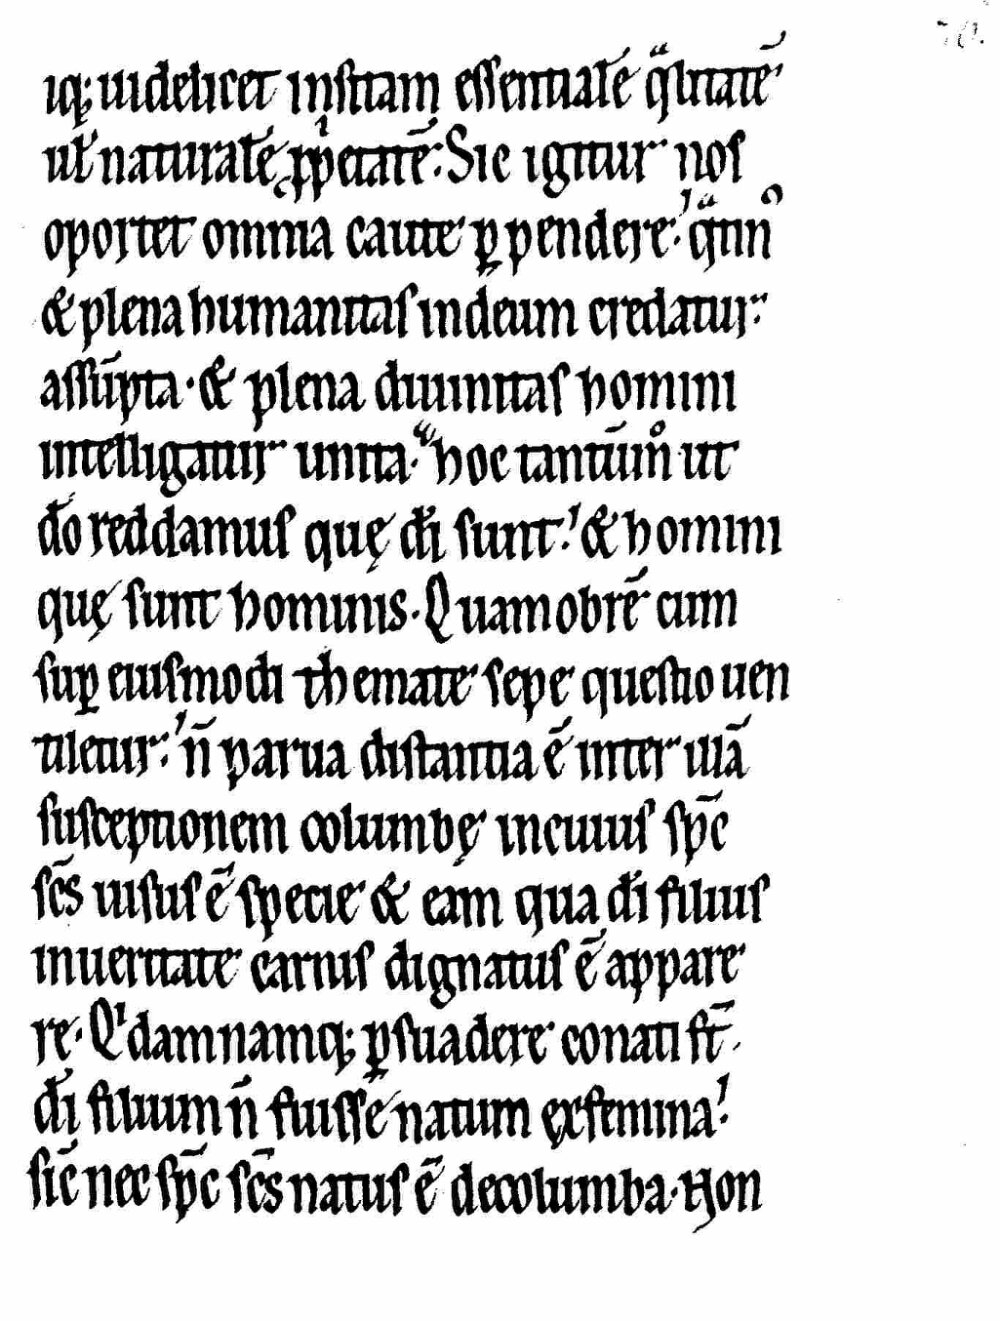 iq; uidelicet insitam essentialē q̄litatē
ul̄ naturalē pp̲etatē: Sic igitur nos
oportet omnia caute p̲pendere. q̄tin⁹
& plena humanitas indeum credatur
assūpta · & plena diuinitas homini
intelligatur unita. hoc tantūm̊ ut
dō reddamus quę dī sunt. & homini
quę sunt hominis. Quamobrē cum
sup̲ eiusmodi themate sepe questio uen
tiletur: n̄ parua distantia ē inter illā
susceptionem columbę incuius sp̄c
sc̄s uisus ē specie & eam qua dī filius
inueritate carnis dignatus ē appare
re. Qⁱdam namq; p̲suadere conati sт̄.
dī filium n̄ fuisse natum exfemina.
sic̄ nec sp̄c sc̄s natus ē decolumba. Non